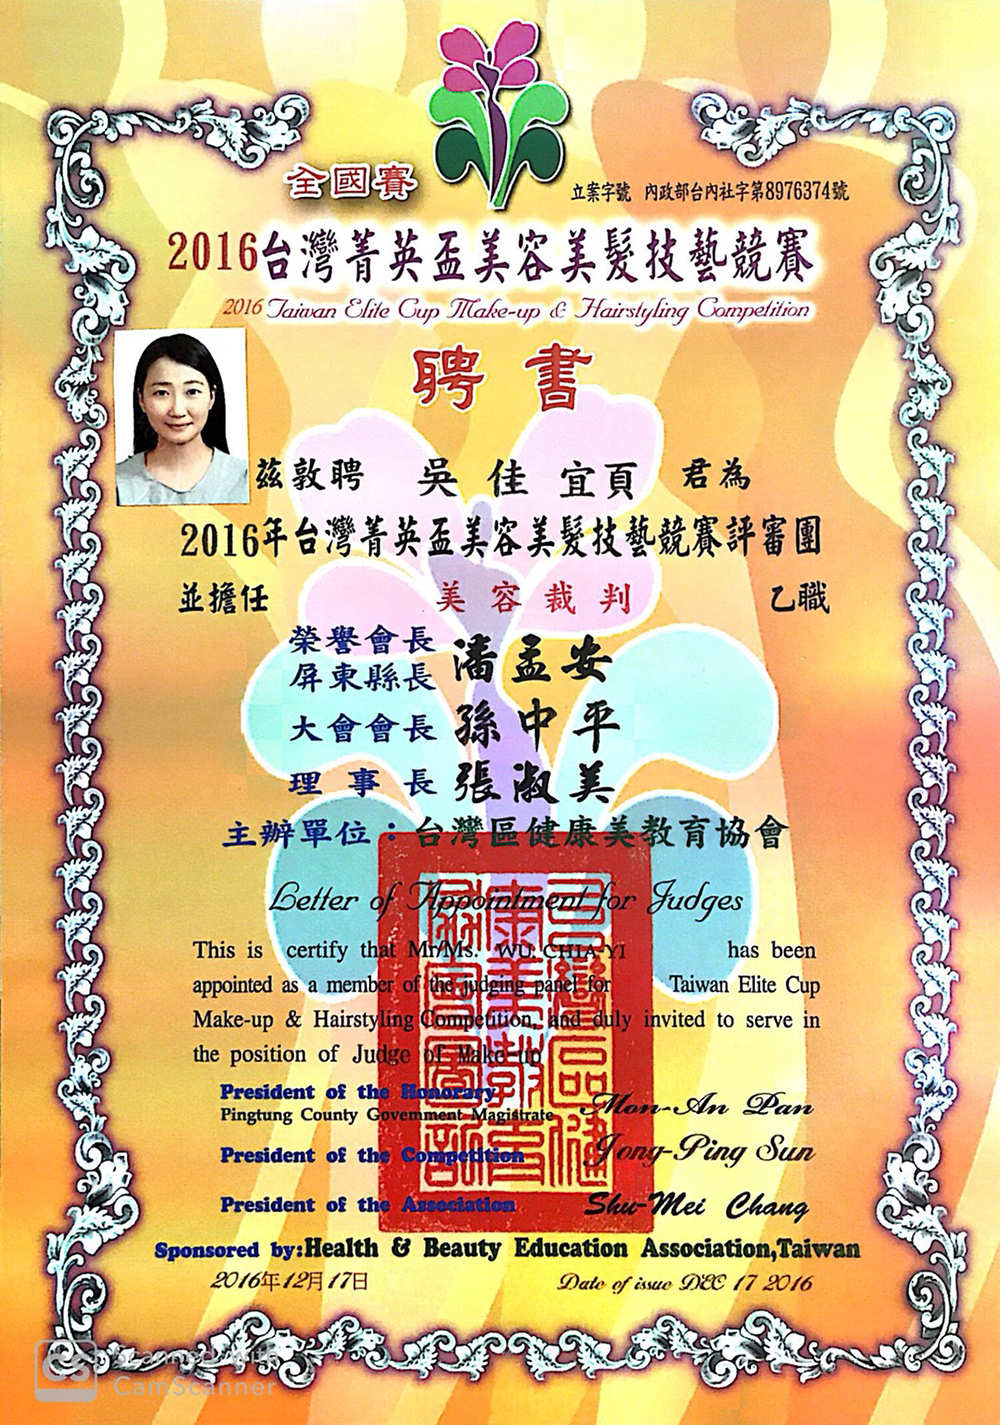 全國賽
立案字號 內政部台內社字第8976374號
2016台灣菁英盃美容美髮技藝競賽
2016 Taiwan Elite Cup Make-up & Hairstyling Competition
聘書
茲敦聘 吳佳宜頁 君為
2016年台灣菁英盃美容美髮技藝競賽評審團
並擔任 美容裁判 乙職
榮譽會長
屏東縣長 潘孟安
大會會長 孫中平
理事長 張淑美
主辦單位：台灣區健康美教育協會
Letter of Appointment for Judges
This is certify that Mr/Ms. WU, CHIA-YI has been
appointed as a member of the judging panel for Taiwan Elite Cup
Make-up & Hairstyling Competition, and duly invited to serve in
the position of Judge of Make-up
President of the Honorary
Pingtung County Government Magistrate Mon-An Pan
President of the Competition Jong-Ping Sun
President of the Association Shu-Mei Chang
Sponsored by:Health & Beauty Education Association,Taiwan
2016年12月17日 Date of issue DEC 17 2016
CS Scanned with
CamScanner